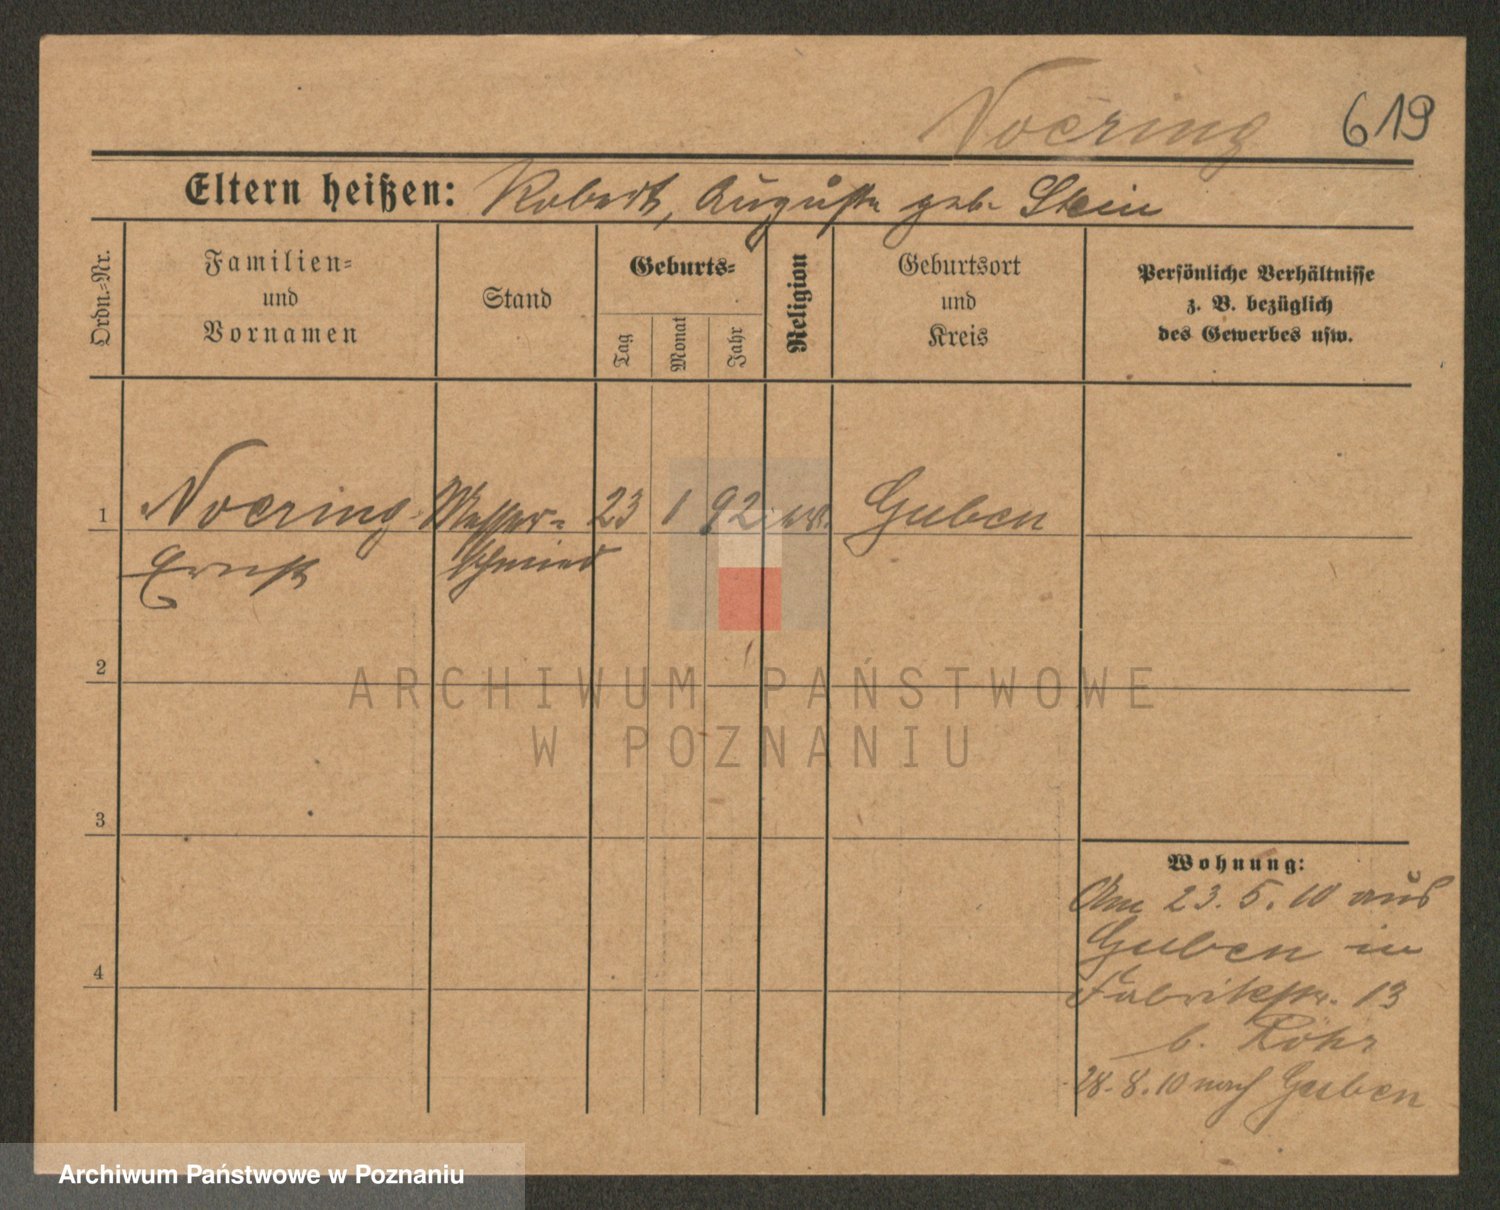 Noering 619
Eltern heißen: Robert, Auguste geb. Stein
Ordn.-Nr.
Familien-
und
Vornamen
Stand
Geburts-
Tag
Monat
Jahr
Religion
Geburtsort
und
Kreis
Persönliche Verhältnisse
z. B. bezüglich
des Gewerbes usw.
1 Noering Messer- 23 1 92 ev. Guben
Ernst schmied
2
ARCHIWUM PAŃSTWOWE
W POZNANIU
3
Wohnung:
Am 23.5.10 aus
Guben in
Fabrikstr. 13
b. Röhr
4
28.8.10 nach Guben
Archiwum Państwowe w Poznaniu